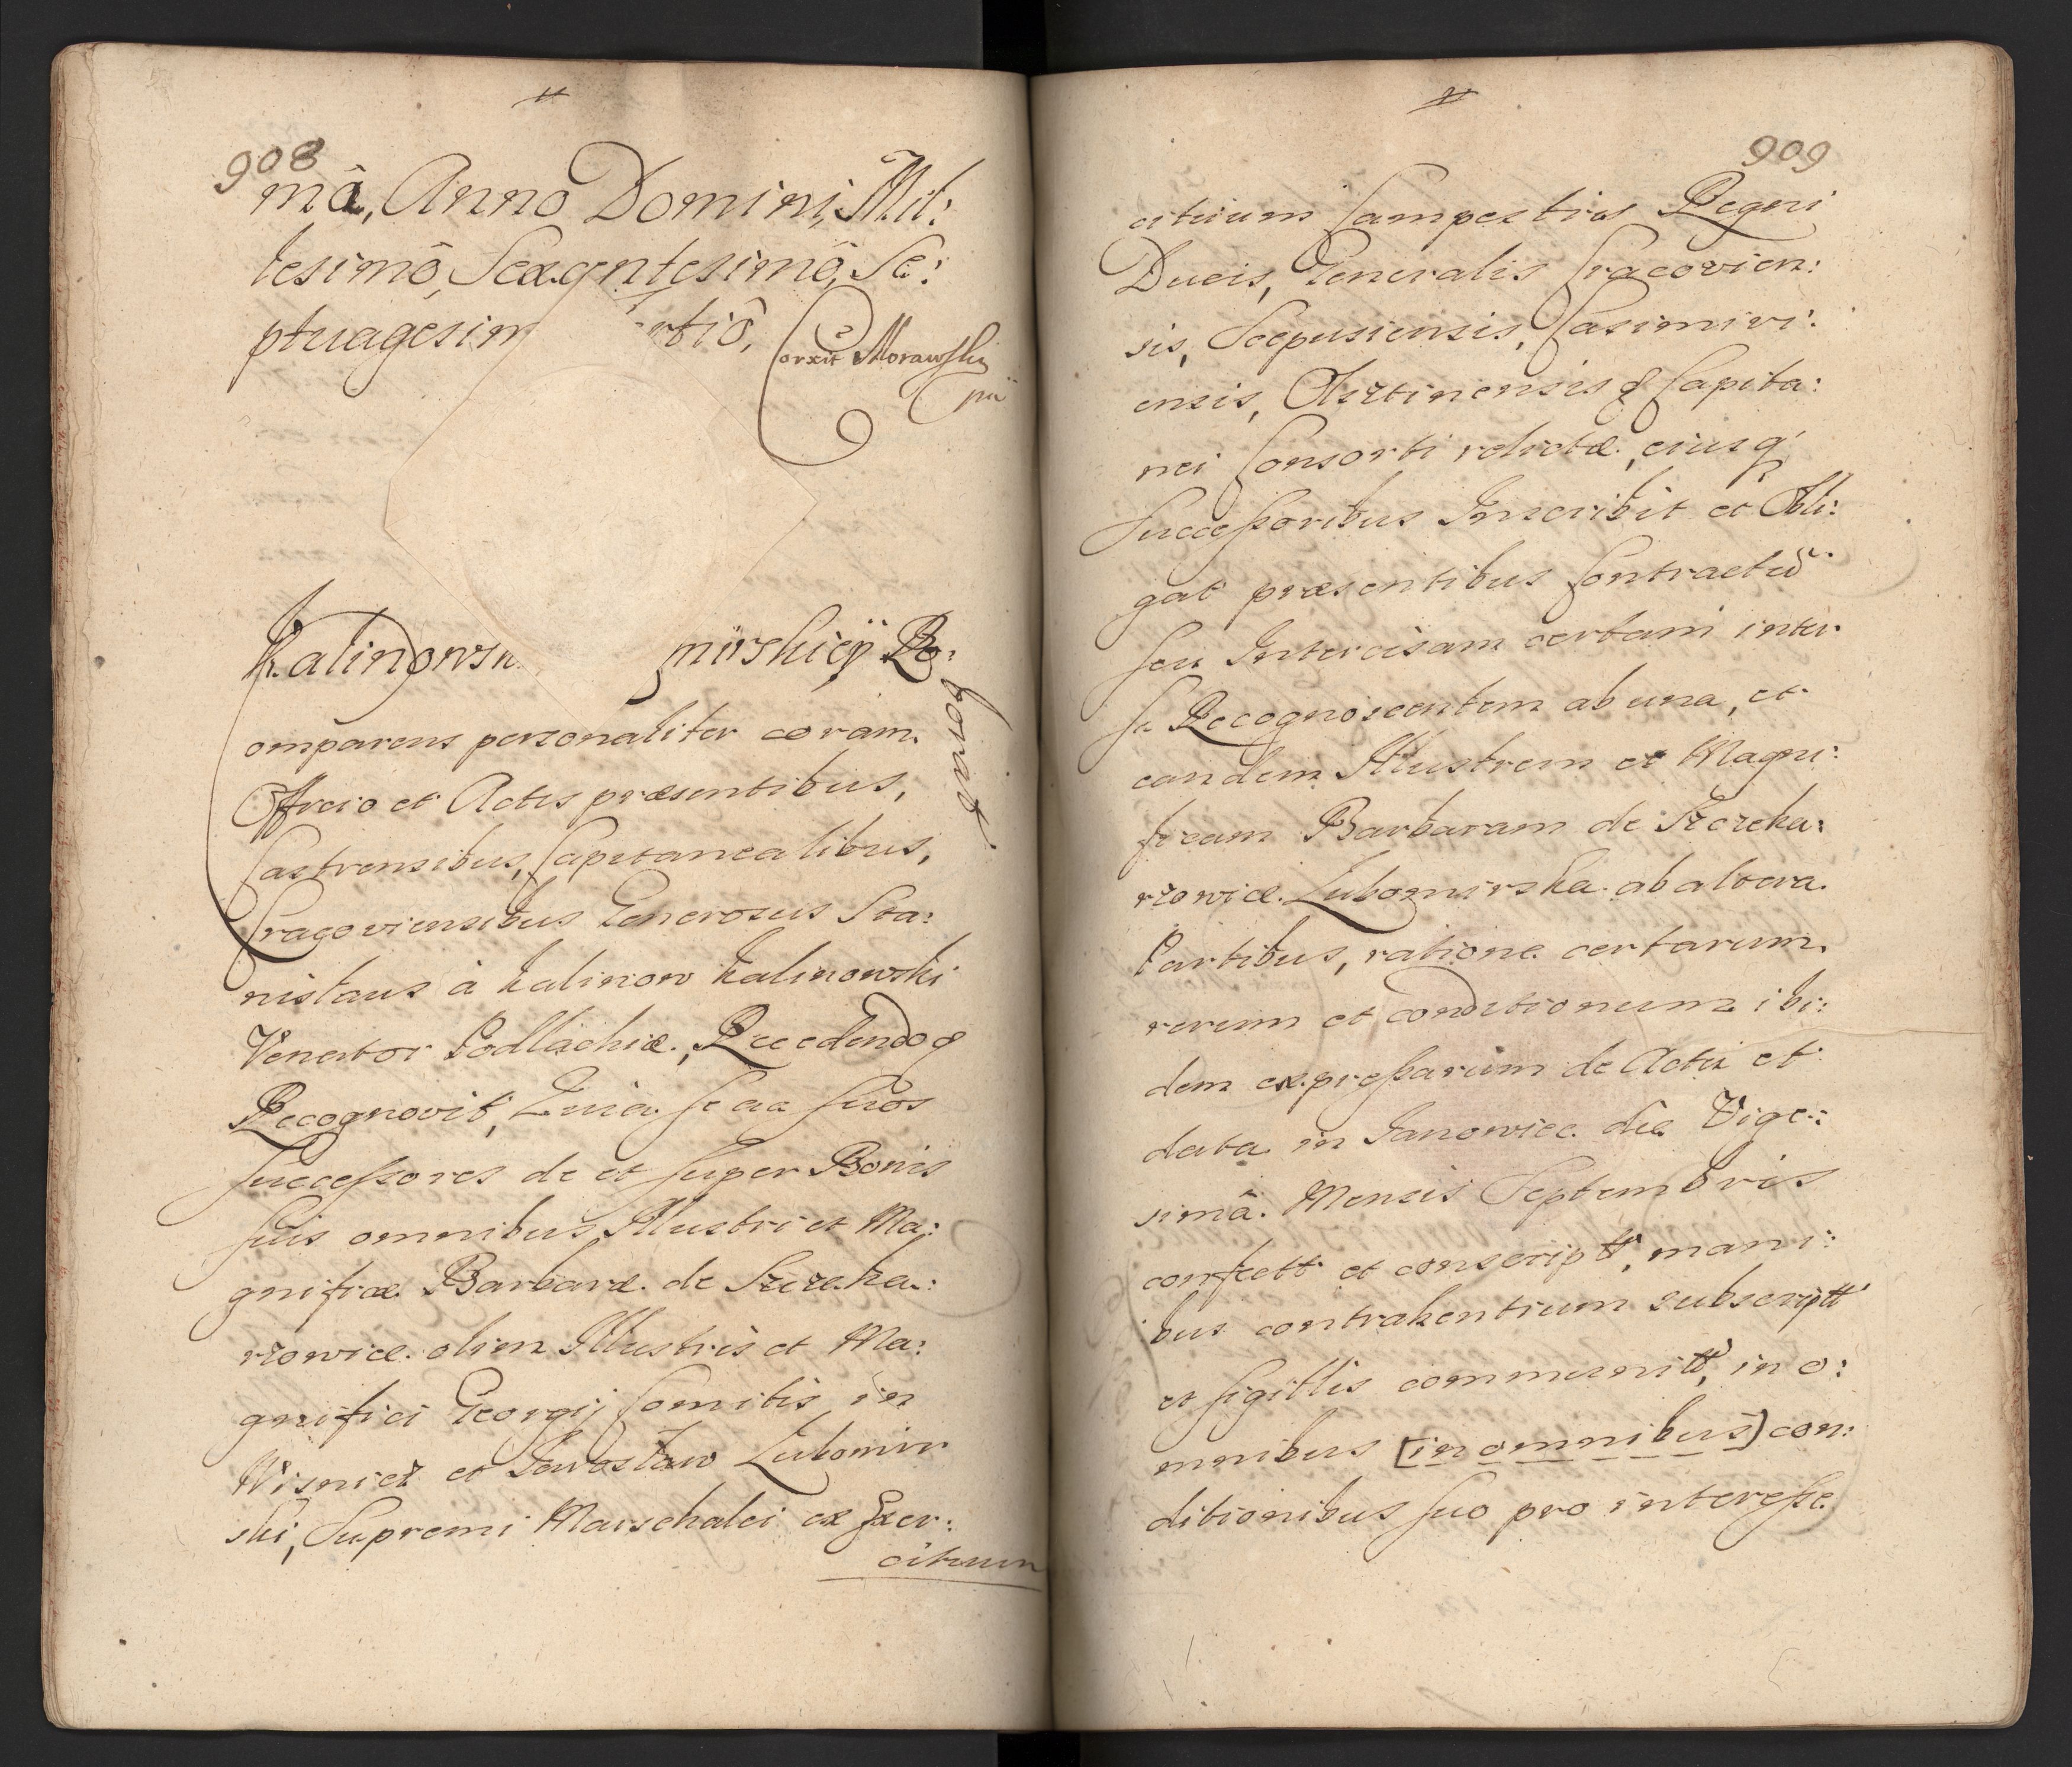 908
mâ, Anno Domini, Mil:
lesimô, Sexgentesimô, Se:
ptuagesim rtiô,
Corxit Morawski
pia
Kalinowsk mirskieÿ Ro:
borat.
Comparens personaliter coram
Officio et Actis præsentibus,
Castrensibus, Capitanealibus,
Cracoviensibus Generosus Sta:
nislaus à Kalinow Kalinowski
Venator Podlachiæ, Recedendo &
Recognovit, Quia se ac suos
successores de et super Bonis
suis omnibus Illustri et Ma:
gnificæ Barbaræ de Szczeka:
rzowice olim Illustris et Ma:
gnifici Georgij Comitis in
Wisnicz et Jarosław Lubomir
ski, Supremi Marschalci ex Exer:
cituum
909
cituum Campestris Regni
Ducis, Generalis Cracovien:
sis, Scepusiensis, Casimiri:
ensis, Olsztinensis & Capita:
nei Consorti relictæ, eiusq;
successoribus Inscribit et Obli:
gat præsentibus Contractũ
seu Intercisam certam inter
se Recognoscentem ab una, et
eandem Illustrem et Magni:
ficam Barbaram de Szczeka:
rzowice Lubomirska ab altera
Partibus, ratione certarum
rerum et conditionum ibi:
dem expressarum de Actu et
data in Janowiec die Vige:
simâ Mensis Septembris
confectt et conscriptt, mani:
bus contrahentium subscriptt
et sigillis communitt, in o:
mnibus [in omnibus] con:
ditionibus suo pro interesse